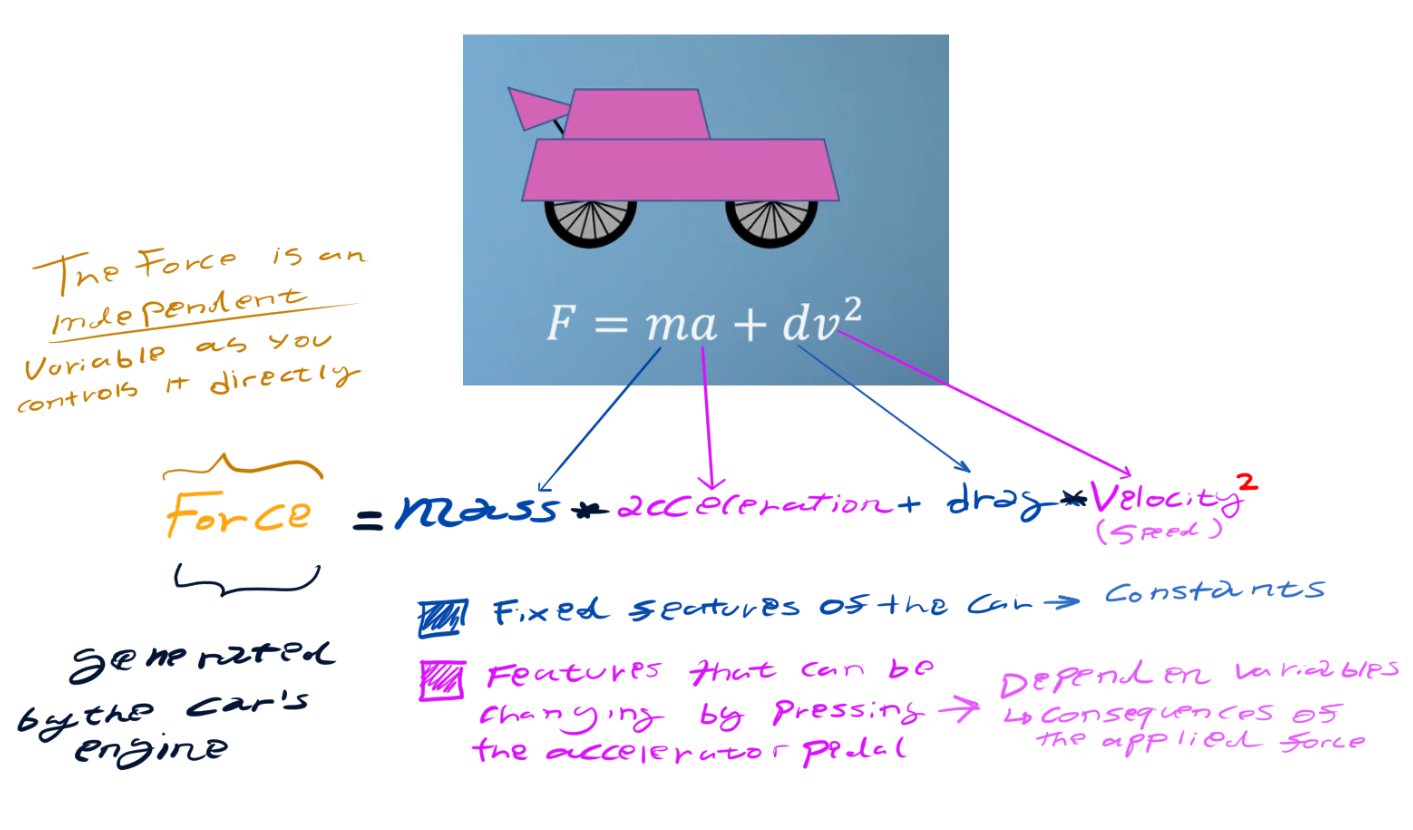 F = ma + dv²
The Force is an
independent
variable as you
controls it directly
Force = mass * acceleration + drag * Velocity²
(Speed)
generated
by the car's
engine
Fixed features of the car → Constants
Features that can be
changing by pressing →
the accelerator pedal
Dependen variables
↳ consequences of
the applied force